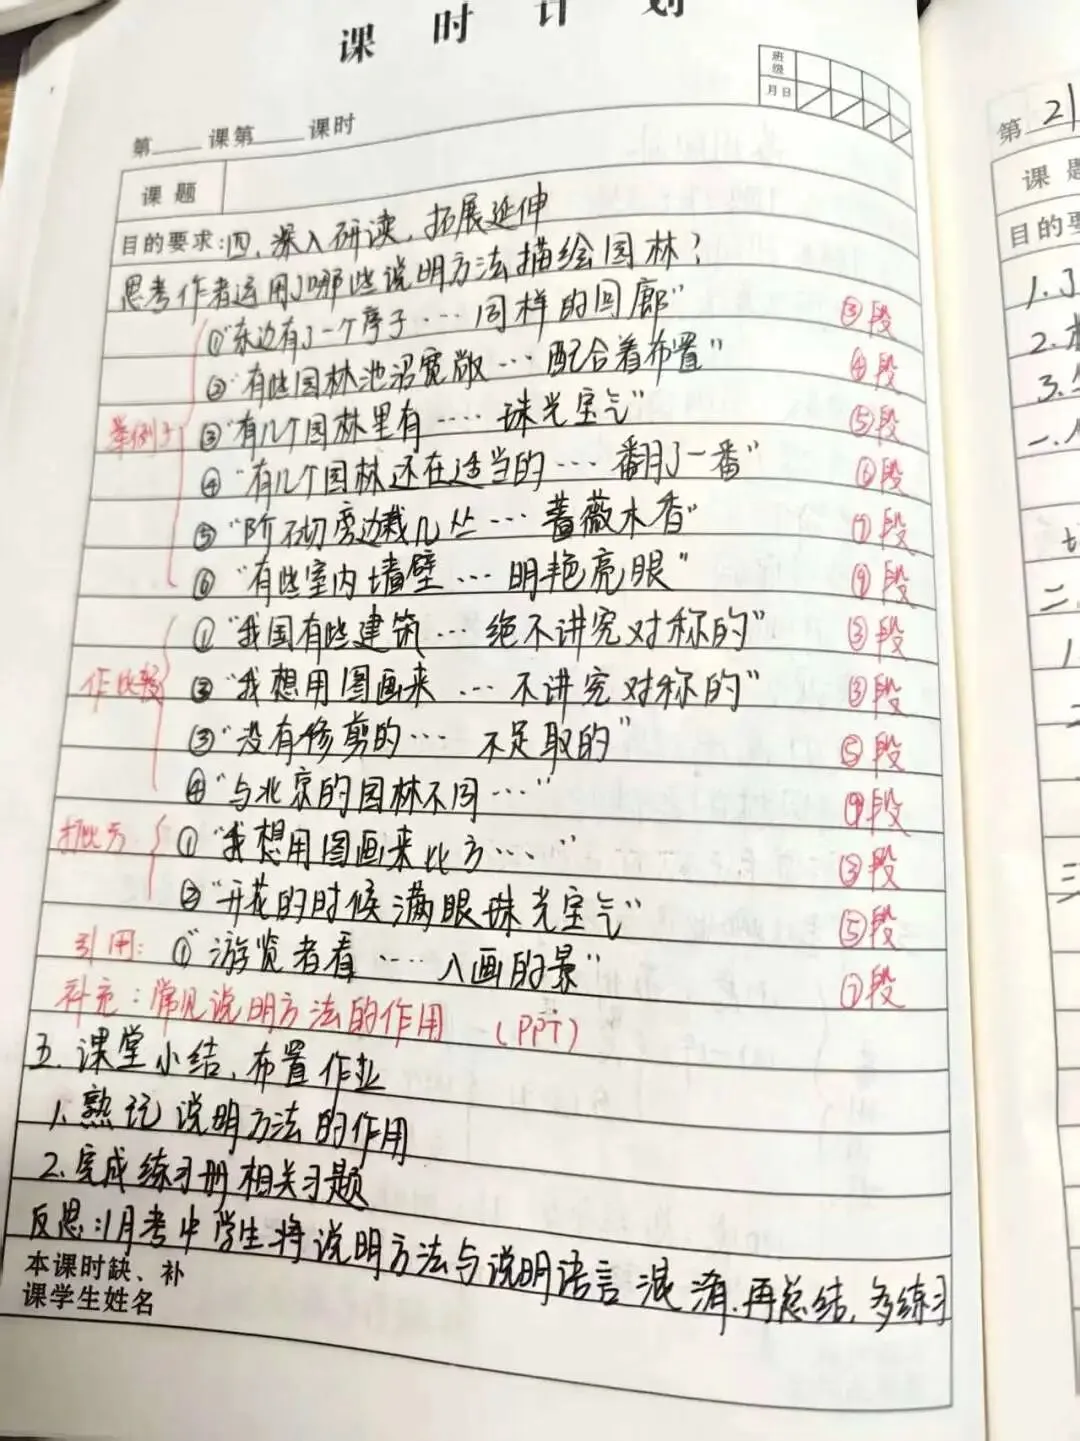 课 时 计 划
班级
月 日
第 课第 课时
课 题
目的要求:四、深入研读,拓展延伸
思考作者运用了哪些说明方法描绘园林?
举例子 ①"东边有了一个亭子…同样的回廊" ③段
②"有些园林池沼宽敞…配合着布置" ④段
③"有几个园林里有……珠光宝气" ⑤段
④"有几个园林还在适当的…翻了一番" ⑥段
⑤"阶砌旁边栽几丛…蔷薇木香" ⑦段
⑥"有些室内墙壁…明艳亮眼" ⑨段
作比较 ①"我国有些建筑…绝不讲究对称的" ③段
②"我想用图画来…不讲究对称的" ③段
③"没有修剪的…不足取的" ⑤段
④"与北京的园林不同…" ⑨段
打比方 ①"我想用图画来比方……" ③段
②"开花的时候满眼珠光宝气" ⑤段
引用: ①"游览者看……入画的景" ⑦段
补充:常见说明方法的作用 (PPT)
五.课堂小结,布置作业
1.熟记说明方法的作用
2.完成练习册相关习题
反思:1月考中学生将说明方法与说明语言混淆.再总结,多练习
本课时缺、补
课学生姓名
第 21
课 题
目的要
1.了
2.
3.
一.
二.
1.
三